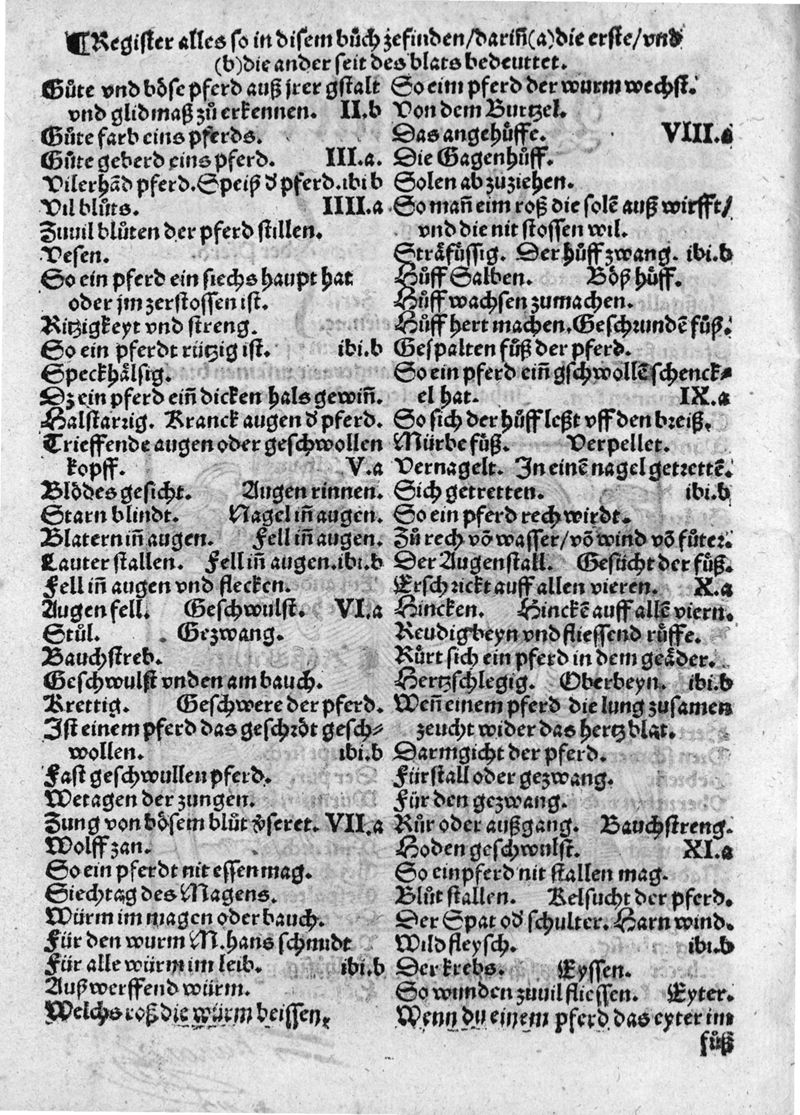 ¶Register alles so in disem bůch zefinden/dariñ(a)die erste/vnd
(b)die ander seit des blats bedeuttet.
Gůte vnd böse pferd auß jrer gstalt
vnd glidmaß zů erkennen. II.b
Gůte farb eins pferds.
Gůte geberd eins pferd. III.a.
Vilerhãd pferd.Speiß d' pferd.ibi b
Vil blůts. IIII.a
Zuuil blůten der pferd stillen.
Vesen.
So ein pferd ein siechs haupt hat
oder jm zerstossen ist.
Ritzigkeyt vnd streng.
So ein pferdt rützig ist. ibi.b
Speckhälsig.
Dz ein pferd eiñ dicken hals gewiñ.
Halstarzig. Kranck augen d' pferd.
Trieffende augen oder geschwollen
kopff. V.a
Blödes gesicht. Augen rinnen.
Starn blindt. Nagel iñ augen.
Blatern iñ augen. Fell iñ augen.
Lauter stallen. Fell iñ augen.ibi.b
Fell iñ augen vnd flecken.
Augen fell. Geschwulst. VI.a
Stůl. Gezwang.
Bauchstreb.
Geschwulst vnden am bauch.
Krettig. Geschwere der pferd.
Ist einem pferd das geschröt gesch⸗
wollen. ibi.b
Fast geschwullen pferd.
Wetagen der zungen.
Zung von bösem blůt v'seret. VII.a
Wolff zan.
So ein pferdt nit essen mag.
Siechtag des Magens.
Würm im magen oder bauch.
Für den wurm M.hans schmidt
Für alle würm im leib. ibi.b
Auß werffend würm.
Welchs roß die würm beissen.
So eim pferd der wurm wechst.
Von dem Burtzel.
Das angehüffe. VIII.a
Die Gagenhůff.
Solen ab zuziehen.
So mañ eim roß die solẽ auß wirfft/
vnd die nit stossen wil.
Sträfüssig. Der hůff zwang. ibi.b
Hůff Salben. Böß hůff.
Hůff wachsen zumachen.
Hůff hert machen.Geschrundẽ fůß.
Gespalten fůß der pferd.
So ein pferd eiñ gschwollẽ schenck⸗
el hat. IX.a
So sich der hůff leßt vff den breiß.
Mürbe fůß. Verpellet.
Vernagelt. In einẽ nagel getrettẽ.
Sich getretten. ibi.b
So ein pferd rech wirdt.
Zů rech võ wasser/võ wind võ fůter.
Der Augenstall. Gesücht der fůß.
Erschrickt auff allen vieren. X.a
Hincken. Hinckẽ auff allẽ viern.
Reudig beyn vnd fliessend rüffe.
Růrt sich ein pferd in dem geäder.
Hertzschlegig. Oberbeyn. ibi.b
Weñ einem pferd die lung zusamen
zeucht wider das hertz blat.
Darmgicht der pferd.
Fürstall oder gezwang.
Für den gezwang.
Růr oder außgang. Bauchstreng.
Hoden geschwulst. XI.a
So ein pferd nit stallen mag.
Blůt stallen. Kelsucht der pferd.
Der Spat od' schulter. Harn wind.
Wild fleysch. ibi.b
Der krebs. Eyssen.
So wunden zuuil fliessen. Eyter.
Wenn du einem pferd das eyter im
fůß